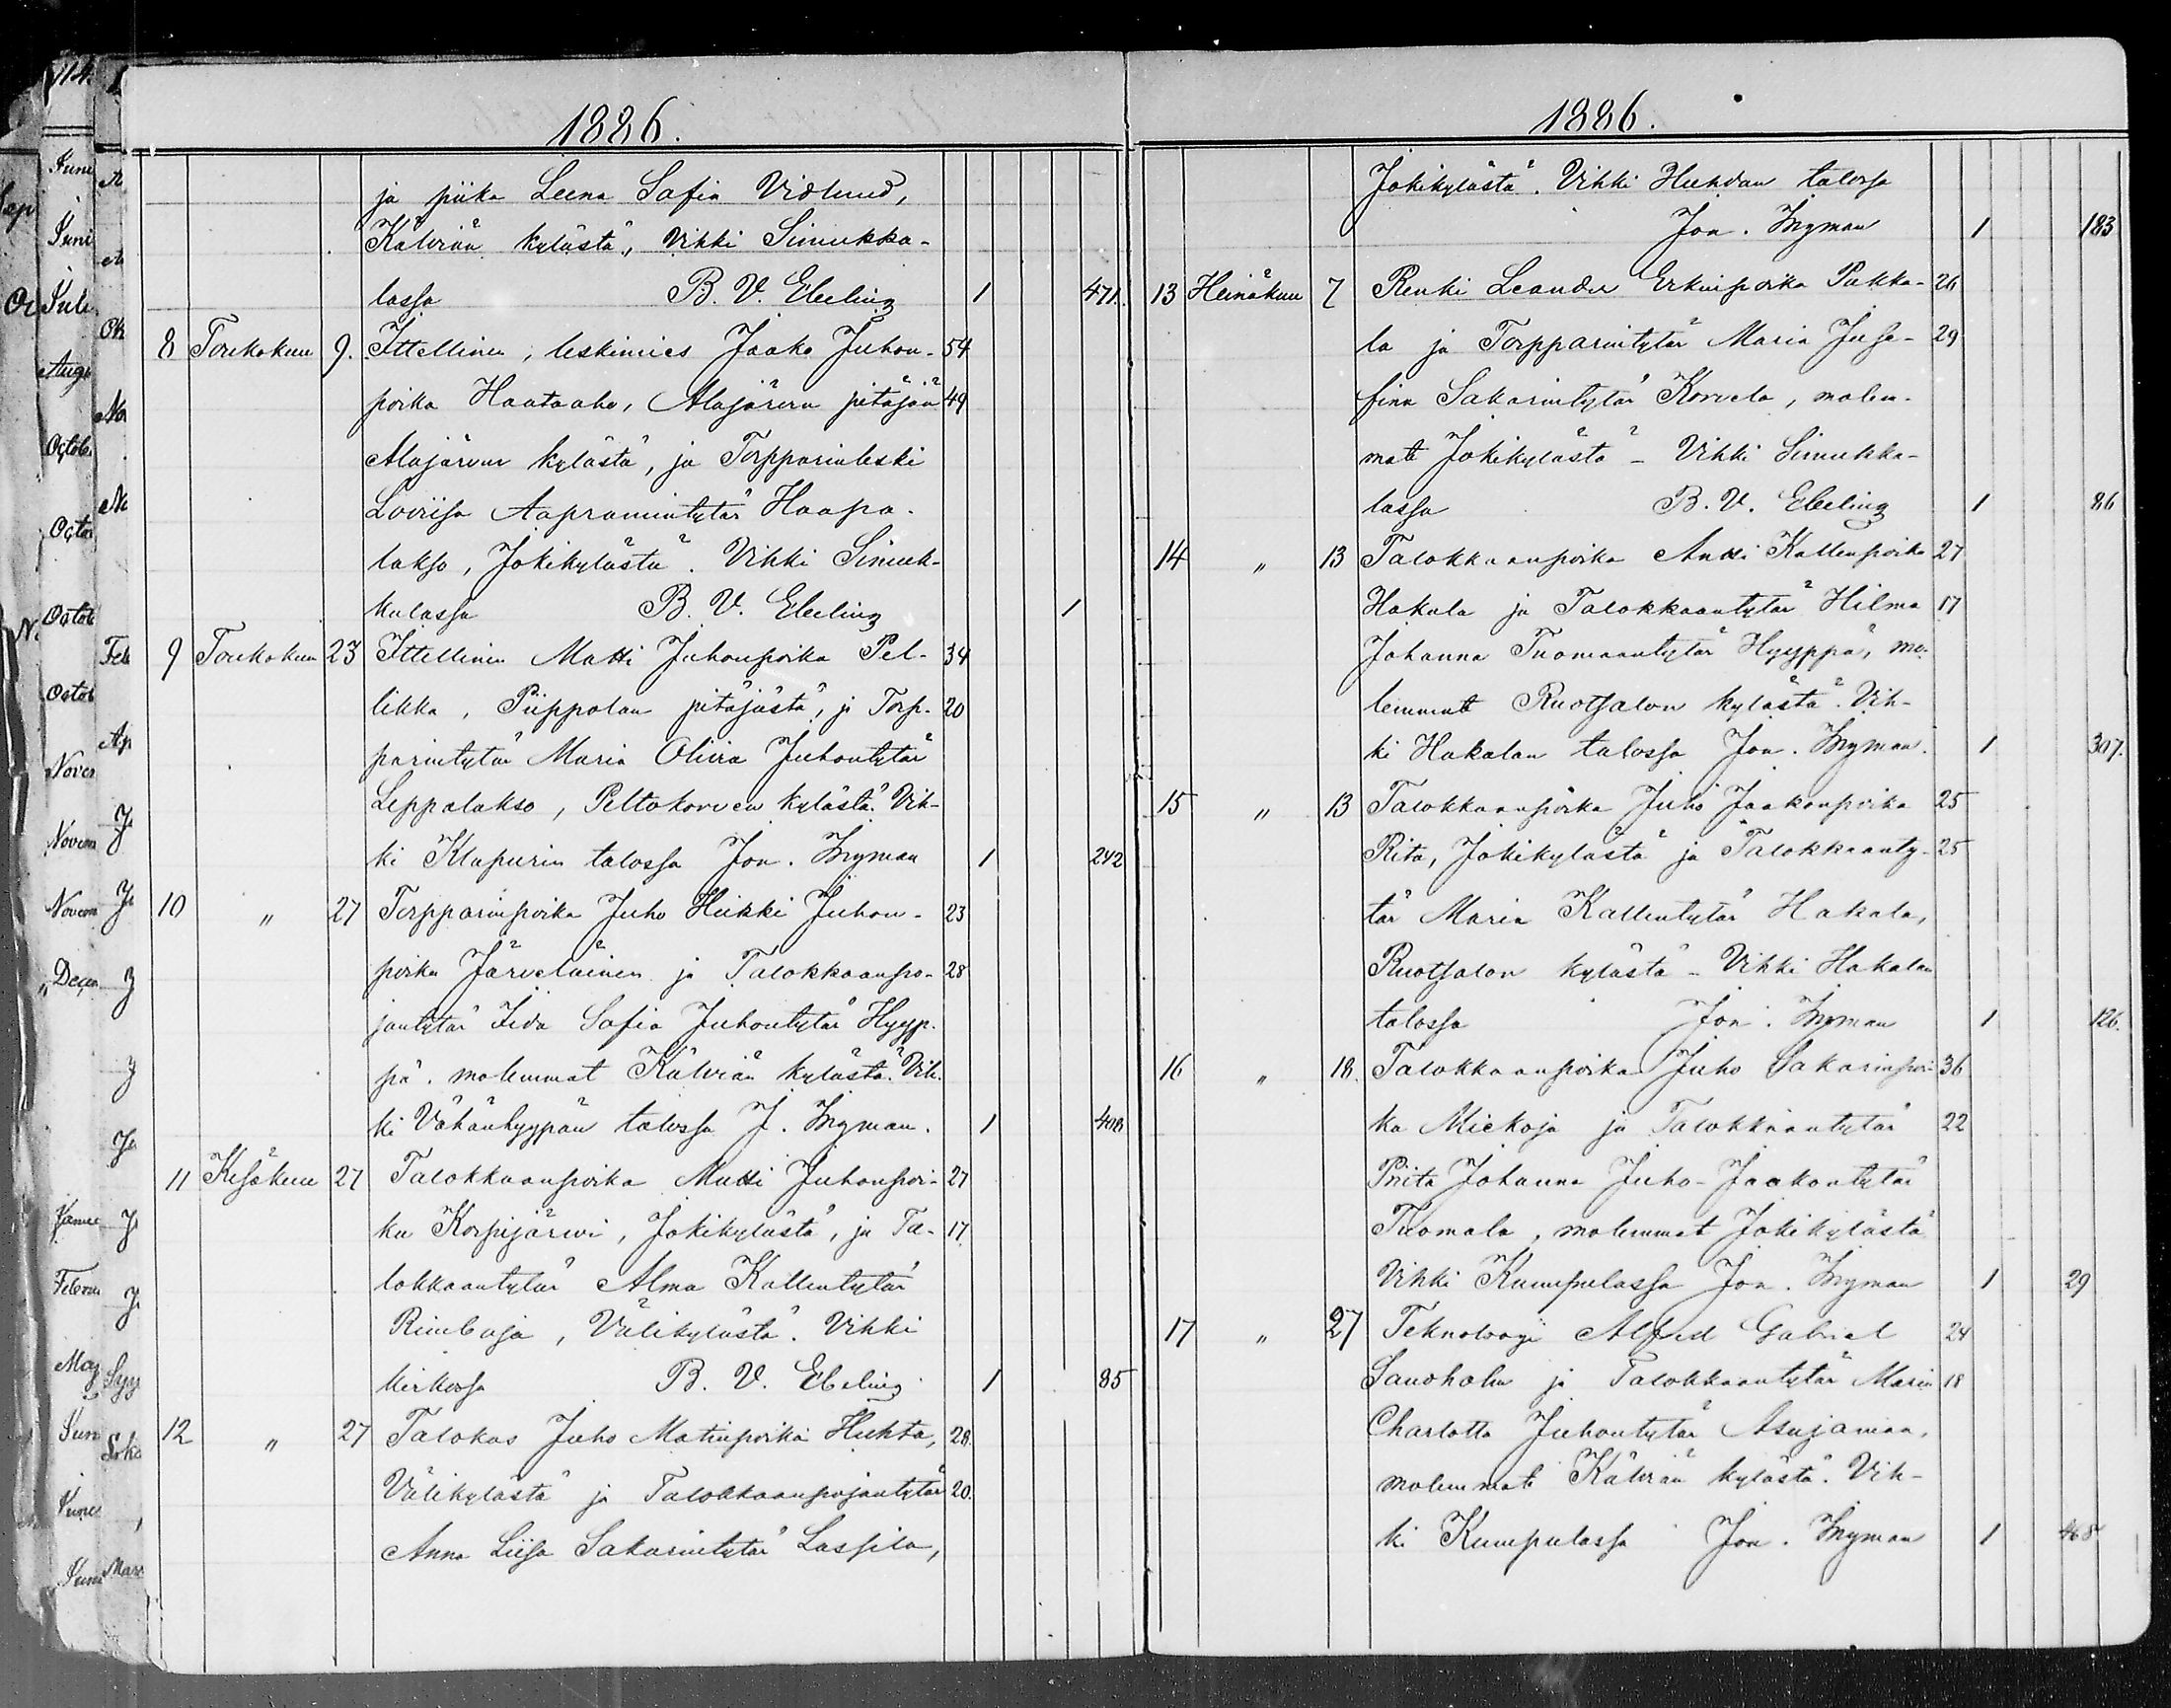 1886.
ja piika Leena Sofia Vidlund,
Kälviän kylästä, Vihki Simukka-
lassa B. V. Ebeling 1 471.
8 Toukokuu 9. Ittellinen, leskimies Jaako Juhon- 54
poika Haataaho, Alajärven pitäjän 49
Alajärven kylästä, ja Torpparinleski
Loviisa Aapramintytär Haapa-
lakso, Jokikylästä. Vihki Simuk-
kalassa B. V. Ebeling 1
9 Toukokuu 23 Ittellinen Matti Juhonpoika Pel- 34
likka, Piippolan pitäjästä, ja Torp- 20
parintytär Maria Olivia Juhontytär
Leppalakso, Peltokorven kylästä. Vih-
ki Klapurin talossa Jon. Ingman 1 242
10 " 27 Torpparinpoika Juho Heikki Juhon- 23
poika Järveläinen ja Talokkaanpo- 28
jantytär Iida Sofia Juhontytär Hyyp-
pä. molemmat Kälviän kylästä. Vih-
ki Vähänhyypän talossa J. Ingman. 1 408
11 Kesäkuu 27 Talokkaanpoika Matti Juhonpoi- 27
ka Korpijärwi, Jokikylästä, ja Ta- 17
lokkaantytär Alma Kallentytär
Rimbaja, Välikylästä. Vihki
kirkossa B. V. Ebeling 1 85
12 " 27 Talokas Juho Matinpoika Huhta, 28.
Välikylästä ja Talokkaanpojantytär 20.
Anna Liisa Sakarintytär Lassila,
1886.
Jokikylästä. Vihki Huhdan talossa
Jon. Ingman 1 183
13 Heinäkuu 7 Renki Leander Erkinpoika Pakka- 26
la ja Torpparintytär Maria Juse- 29
fina Sakarintytär Korvela, molem-
mat Jokikylästä - Vihki Simukka-
lassa B. V. Ebeling 1 86
14 " 13 Talokkaanpoika Antti Kallenpoika 27
Hakala ja Talokkaantytär Hilma 17
Johanna Tuomaantytär Hyyppä, mo-
lemmat Ruotsalon kylästä. Vih-
ki Hakalan talossa Jon. Ingman. 1 307.
15 " 13 Talokkaanpoika Juho Jaakonpoika 25
Rita, Jokikylästä ja Talokkaanty- 25
tär Maria Kallentytär Hakala,
Ruotsalon kylästä - Vihki Hakalan
talossa Jon. Ingman 1 126.
16 " 18. Talokkaanpoika Juho Sakarinpoi- 36
ka Miekoja ja Talokkaantytär 22
Priita Johanna Juho-Jaakontytär
Tuomala, molemmat Jokikylästä
Vihki Kumpulassa Jon. Ingman 1 29
17 " 27 Teknoloogi Alfred Gabriel 24
Sandholm ja Talokkaantytär Maria 18
Charlotta Juhontytär Asujamaa,
molemmat Kälviän kylästä. Vih-
ki Kumpulassa Jon. Ingman 1 468